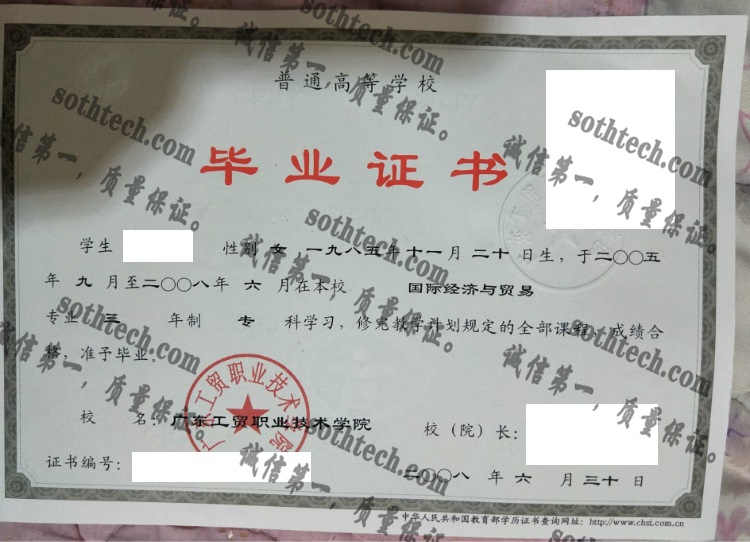 普通高等学校
毕业证书
学生 性别 女 一九八五年十一月二十日生，于二〇〇五
年 九 月至二〇〇八年 六 月在本校 国际经济与贸易
专业 三 年制 专 科学习，修完教学计划规定的全部课程，成绩合
格，准予毕业。
校 名：广东工贸职业技术学院 校（院）长：
证书编号： 二〇〇八 年 六 月 三十 日
中华人民共和国教育部学历证书查询网址：http://www.chsi.com.cn
广东工贸职业技术学院
sothtech.com
诚信第一，质量保证。
sothtech.com
诚信第一，质量保证。
sothtech.com
诚信第一，质量保证。
sothtech.com
诚信第一，质量保证。
sothtech.com
诚信第一，质量保证。
sothtech.com
诚信第一，质量保证。
sothtech.com
诚信第一，质量保证。
sothtech.com
诚信第一，质量保证。